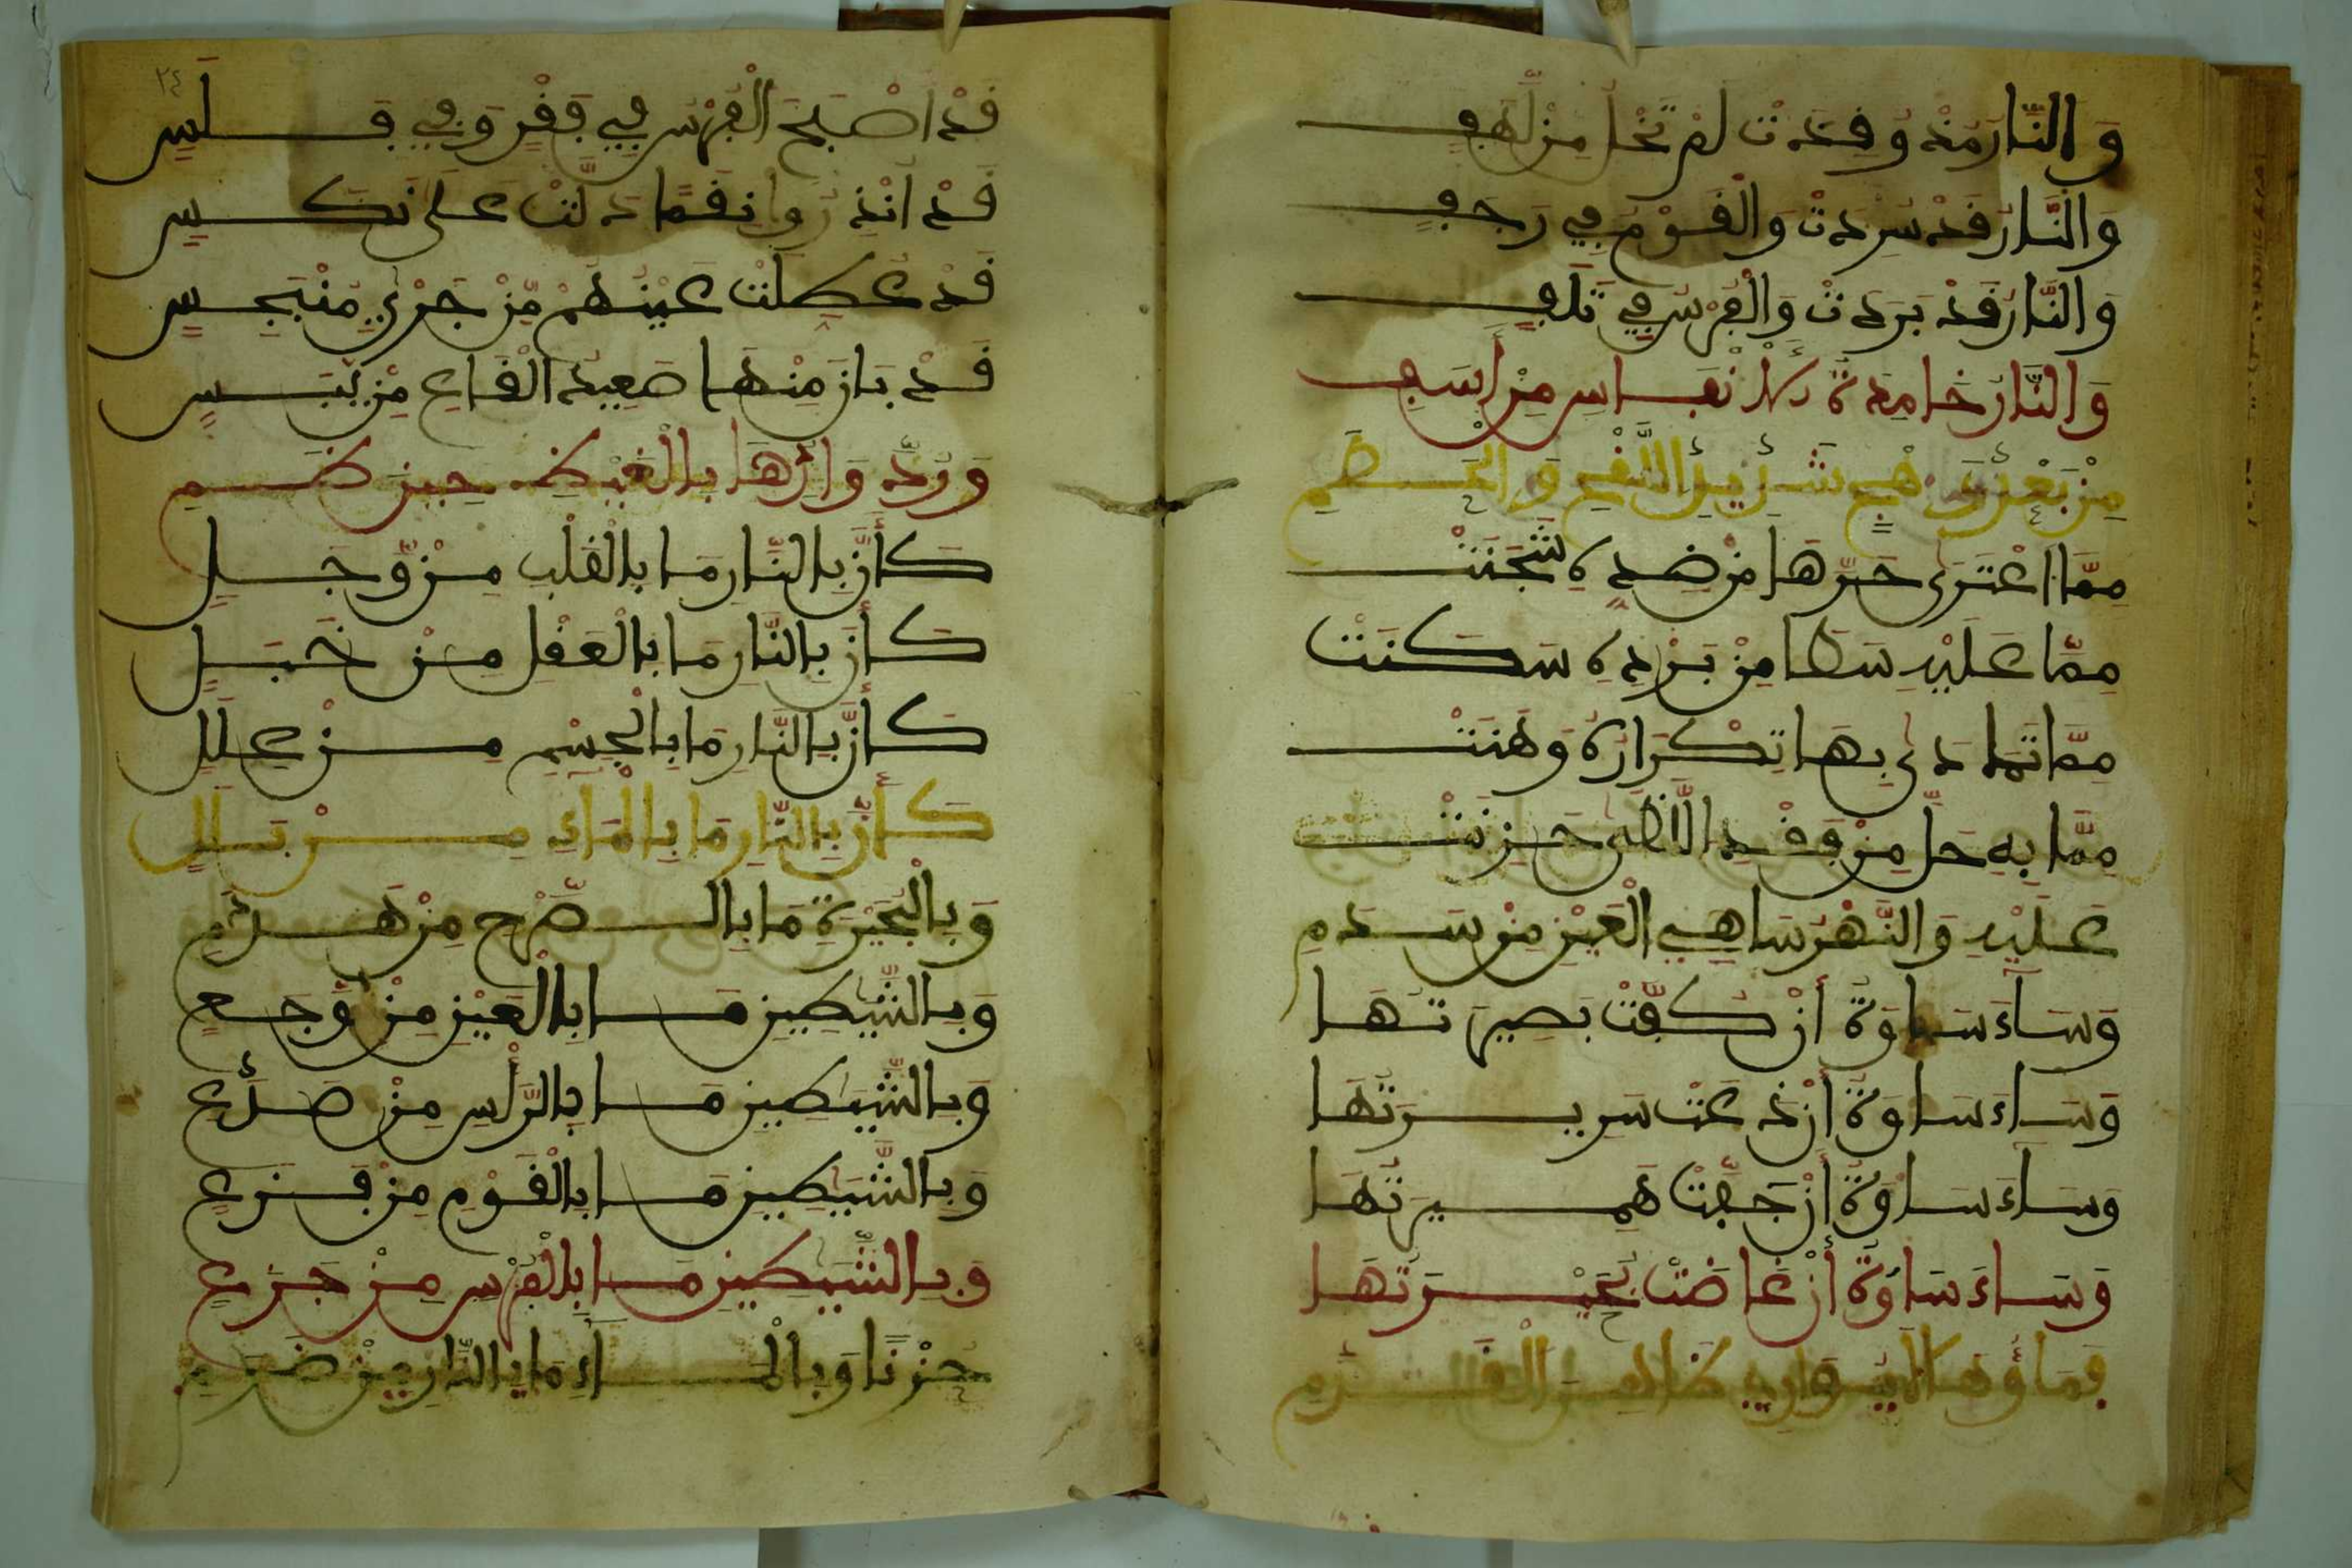 وَالنَّارُ مُذْ وُقِدَتْ لَمْ تَخْلُ مِنْ لَهَفِ
وَالنَّارُ قَدْ سَرَدَتْ وَالْقَوْمُ فِي رَجَفِ
وَالنَّارُ قَدْ بَرَدَتْ وَالْفُرْسُ فِي تَلَفِ
وَالنَّارُ خَامِدَةُ الْأَنْفَاسِ مِنْ أَسَفِ
مِنْ بَعْدِ وَهْجٍ شَدِيدِ اللَّفْحِ وَالْحَطَمِ
مِمَّا اعْتَرَى حَرَّهَا مِنْ ضِدِّهِ شَجَنَتْ
مِمَّا عَلَيْهِ سَطَا مِنْ بَرْدِهِ سَكَنَتْ
مِمَّا تَمَادَى بِهَا تِكْرَارُهُ وَهَنَتْ
مِمَّا بِهِ حَلَّ مِنْ فَقْدِ اللَّظَى حَزِنَتْ
عَلَيْهِ وَالنَّهْرُ سَاهِي الْعَيْنِ مِنْ سَدَمِ
وَسَآءَ سَاوَةَ أَنْ كُفَّتْ بَصِيرَتُهَا
وَسَآءَ سَاوَةَ أَنْ ذَعَتْ سَرِيرَتُهَا
وَسَآءَ سَاوَةَ أَنْ جَفَّتْ هَمِيرَتُهَا
وَسَاءَ سَاوَةَ أَنْ غَاضَتْ بُحَيْرَتُهَا
فَمَاؤُهَا
٢٤
قَدْ أَصْبَحَ الْفُرْسُ فِي قَفْرٍ وَفِي فَلَسِ
قَدْ أُنْذِرُوا نِقَمًا دَلَّتْ عَلَى نَكَسِ
قَدْ عُطِّلَتْ عَيْنُهُمْ مِنْ جَرْيِ مُنْبَجِسِ
قَدْ بَانَ مِنْهَا صَعِيدُ الْقَاعِ مِنْ يَبَسِ
وَرُدَّ وَارِدُهَا بِالْغَيْظِ حِينَ ظَمِ
كَأَنَّ بِالنَّارِ مَا بِالْقَلْبِ مِنْ وَجَلٍ
كَأَنَّ بِالنَّارِ مَا بِالْعَقْلِ مِنْ خَبَلٍ
كَأَنَّ بِالنَّارِ مَا بِالْجِسْمِ مِنْ عِلَلٍ
كَأَنَّ بِالنَّارِ مَا بِالْمَآءِ مِنْ بَلَلٍ
وَبِالْبُحَيْرَةِ مَا بِالصَّرْحِ مِنْ هَدَمِ
وَبِالشَّيَاطِينِ مَا بِالْعَيْنِ مِنْ وَجَعِ
وَبِالشَّيَاطِينِ مَا بِالرَّأْسِ مِنْ صَدَعِ
وَبِالشَّيَاطِينِ مَا بِالْقَوْمِ مِنْ فَزَعِ
وَبِالشَّيَاطِينِ مَا بِالْفُرْسِ مِنْ جَزَعِ
حُزْنًا وَبِالْمَآءِ مَا بِالنَّارِ مِنْ ضَرَمِ